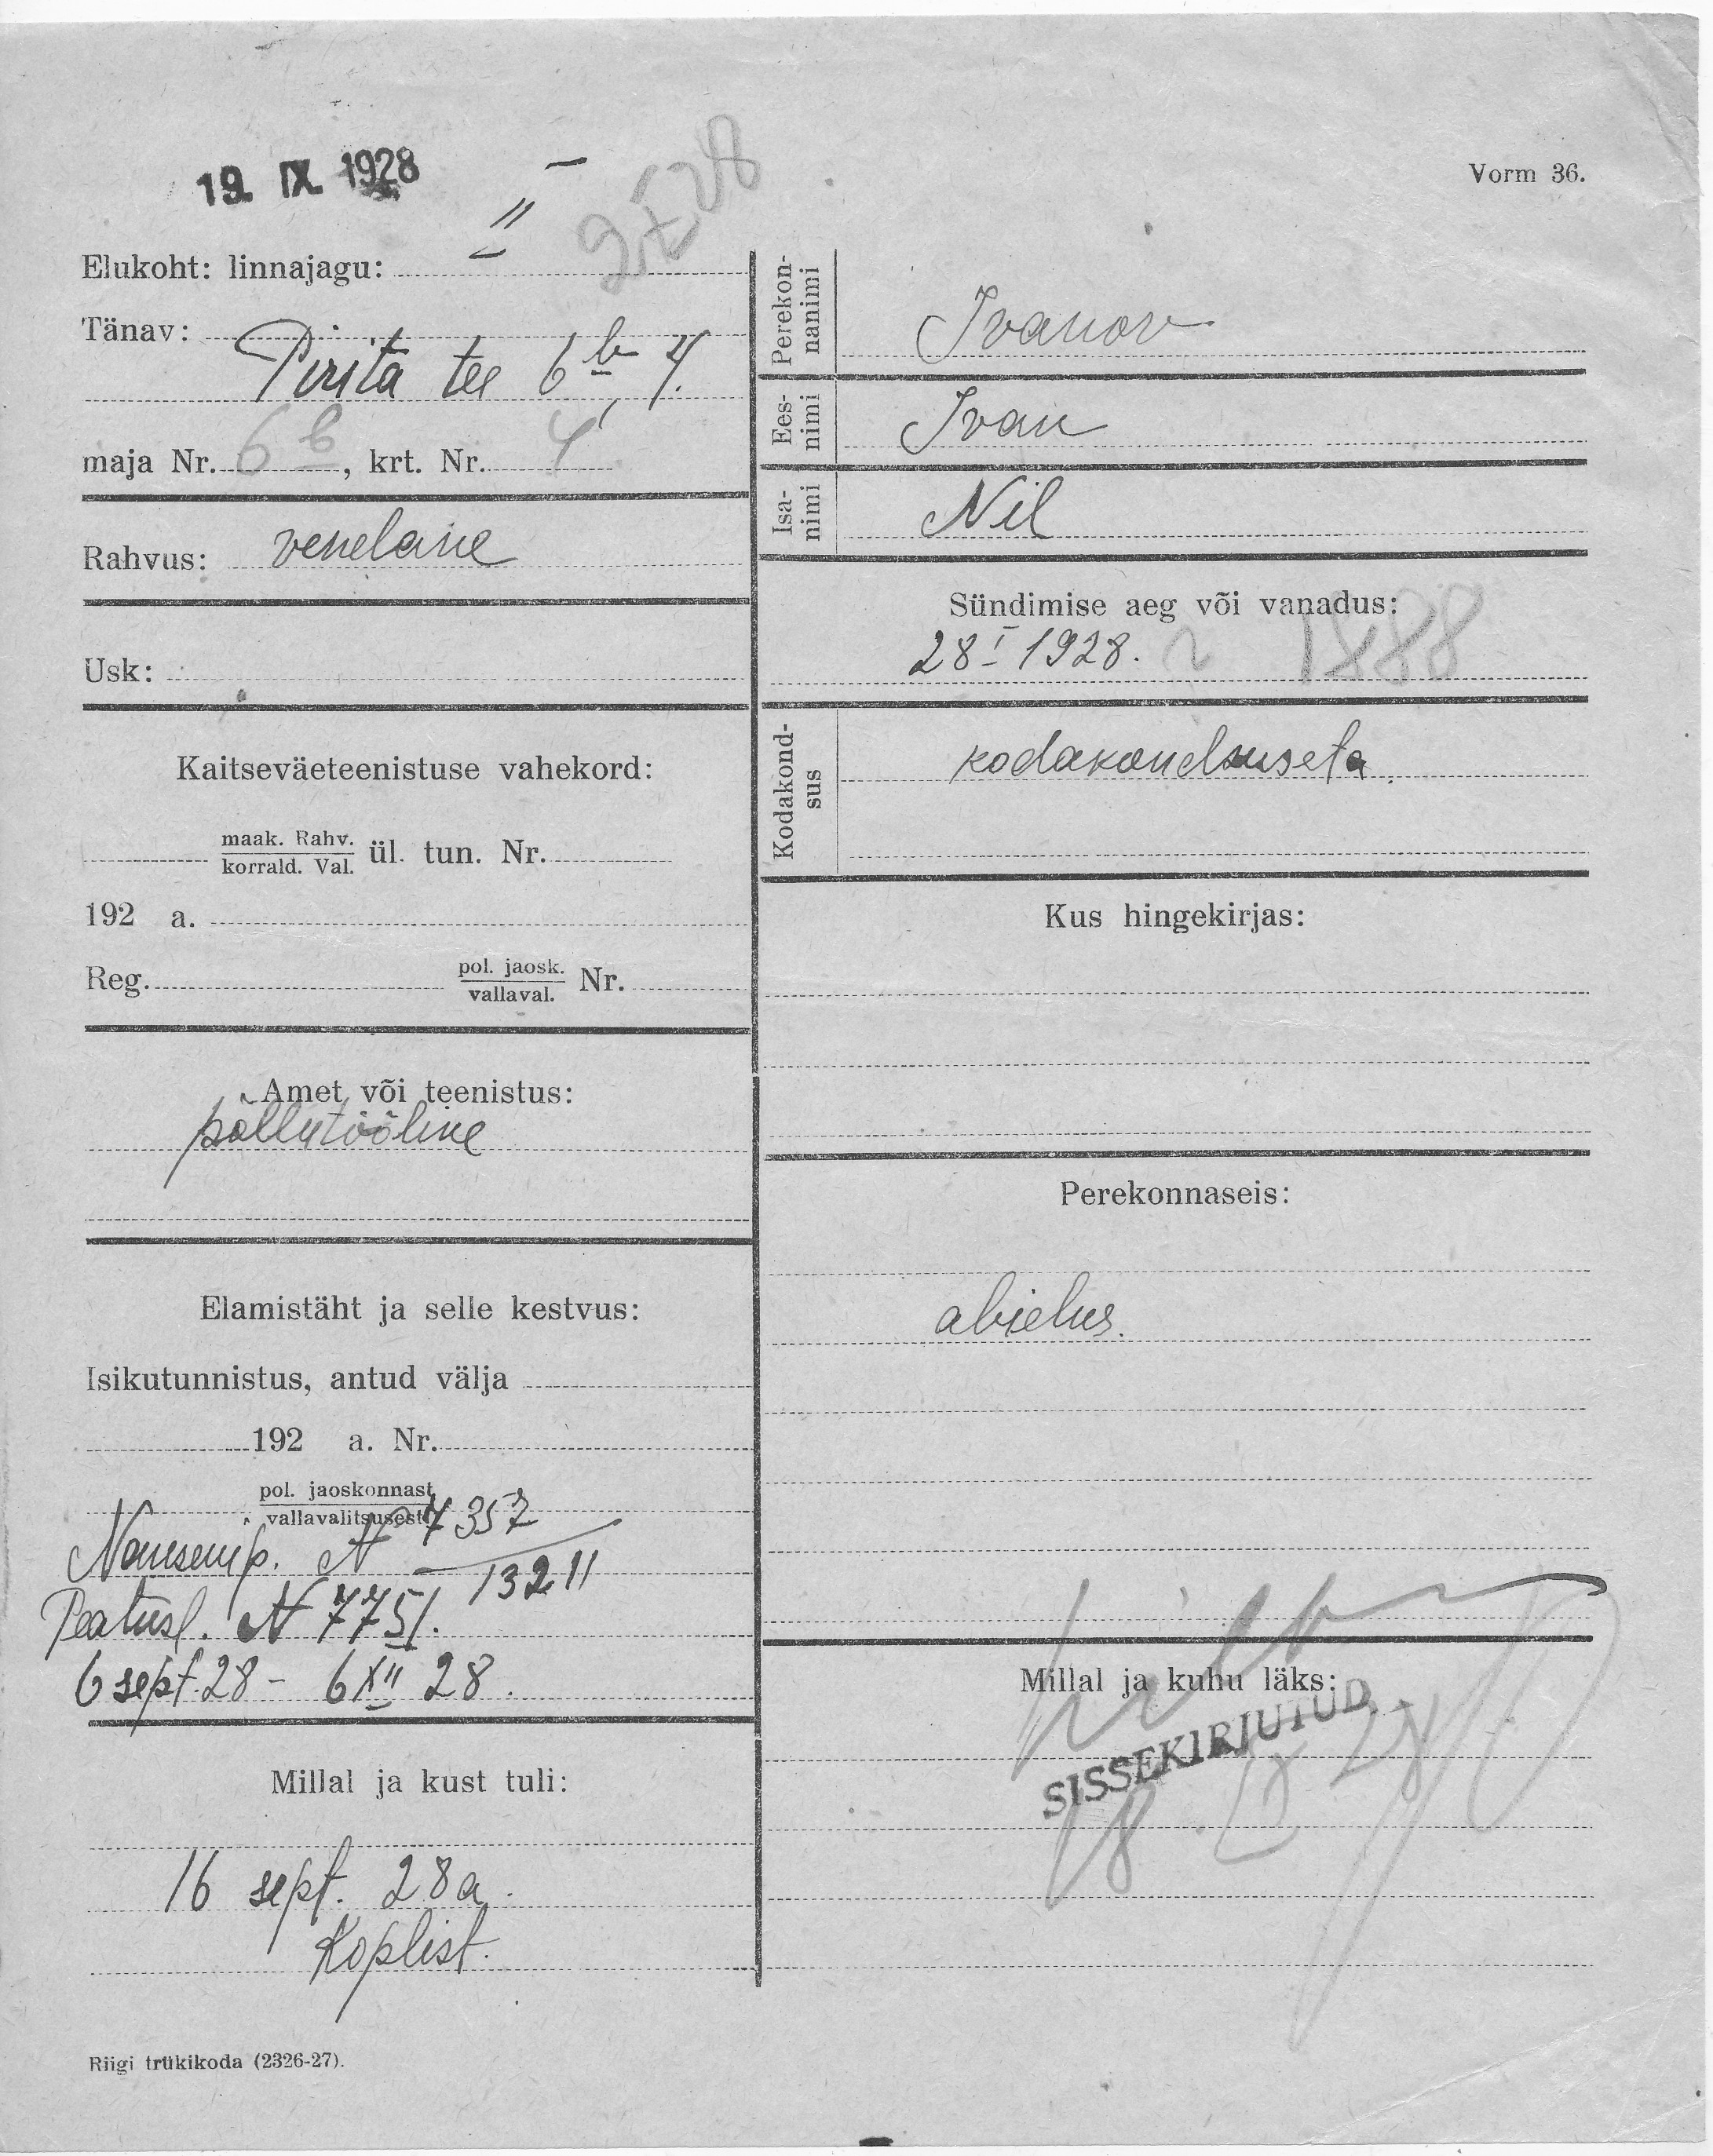 19. IX. 1928
Vorm 36.
Elukoht: linnajagu: II
Tänav:
Pirita tee 6 b, 4.
maja Nr. 6 b, krt. Nr. 4
Rahvus: venelane
Usk:
Kaitseväeteenistuse vahekord:
maak. Rahv.
korrald. Val. ül. tun. Nr.
192 a.
Reg. pol. jaosk.
vallaval. Nr.
Amet või teenistus:
põllutööline
Elamistäht ja selle kestvus:
Isikutunnistus, antud välja
192 a. Nr.
pol. jaoskonnast
vallavalitsusest
Nansenip. N 7357
13211
Peatusl. N 7751.
6 sept. 28 - 6 XII 28.
Millal ja kust tuli:
16 sept. 28 a.
Koplist.
Riigi trükikoda (2326-27).
Perekon-
nanimi Ivanov
Ees-
nimi Ivan
Isa-
nimi Nil
Sündimise aeg või vanadus:
28 I 1928. 1888
Kodakond-
sus kodakondsuseta.
Kus hingekirjas:
Perekonnaseis:
abielus.
Millal ja kuhu läks:
SISSEKIRJUTUD